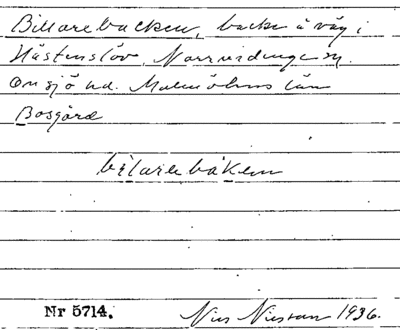 Billarebacken, backe å väg i
Hästenslöv, Norrvidinge sn.
Onsjö hd. Malmöhus län
Bosgård
bilarebakem
Nr 5714.
Nils Nilsson 1936.